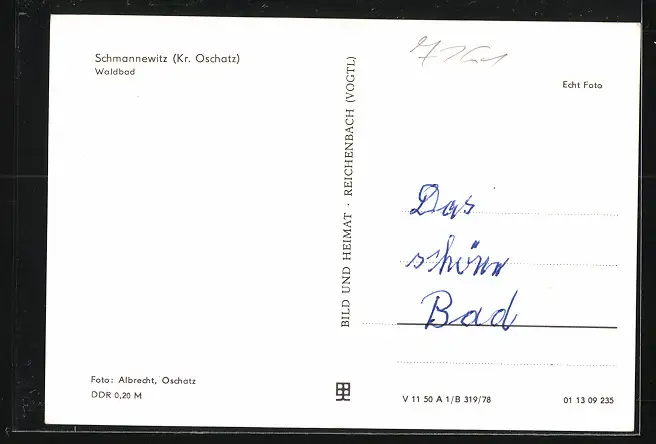 Schmannewitz (Kr. Oschatz)
Waldbad
7161
Echt Foto
BILD UND HEIMAT · REICHENBACH (VOGTL)
Das
schöne
Bad
Foto: Albrecht, Oschatz
DDR 0,20 M
V 11 50 A 1/B 319/78
01 13 09 235